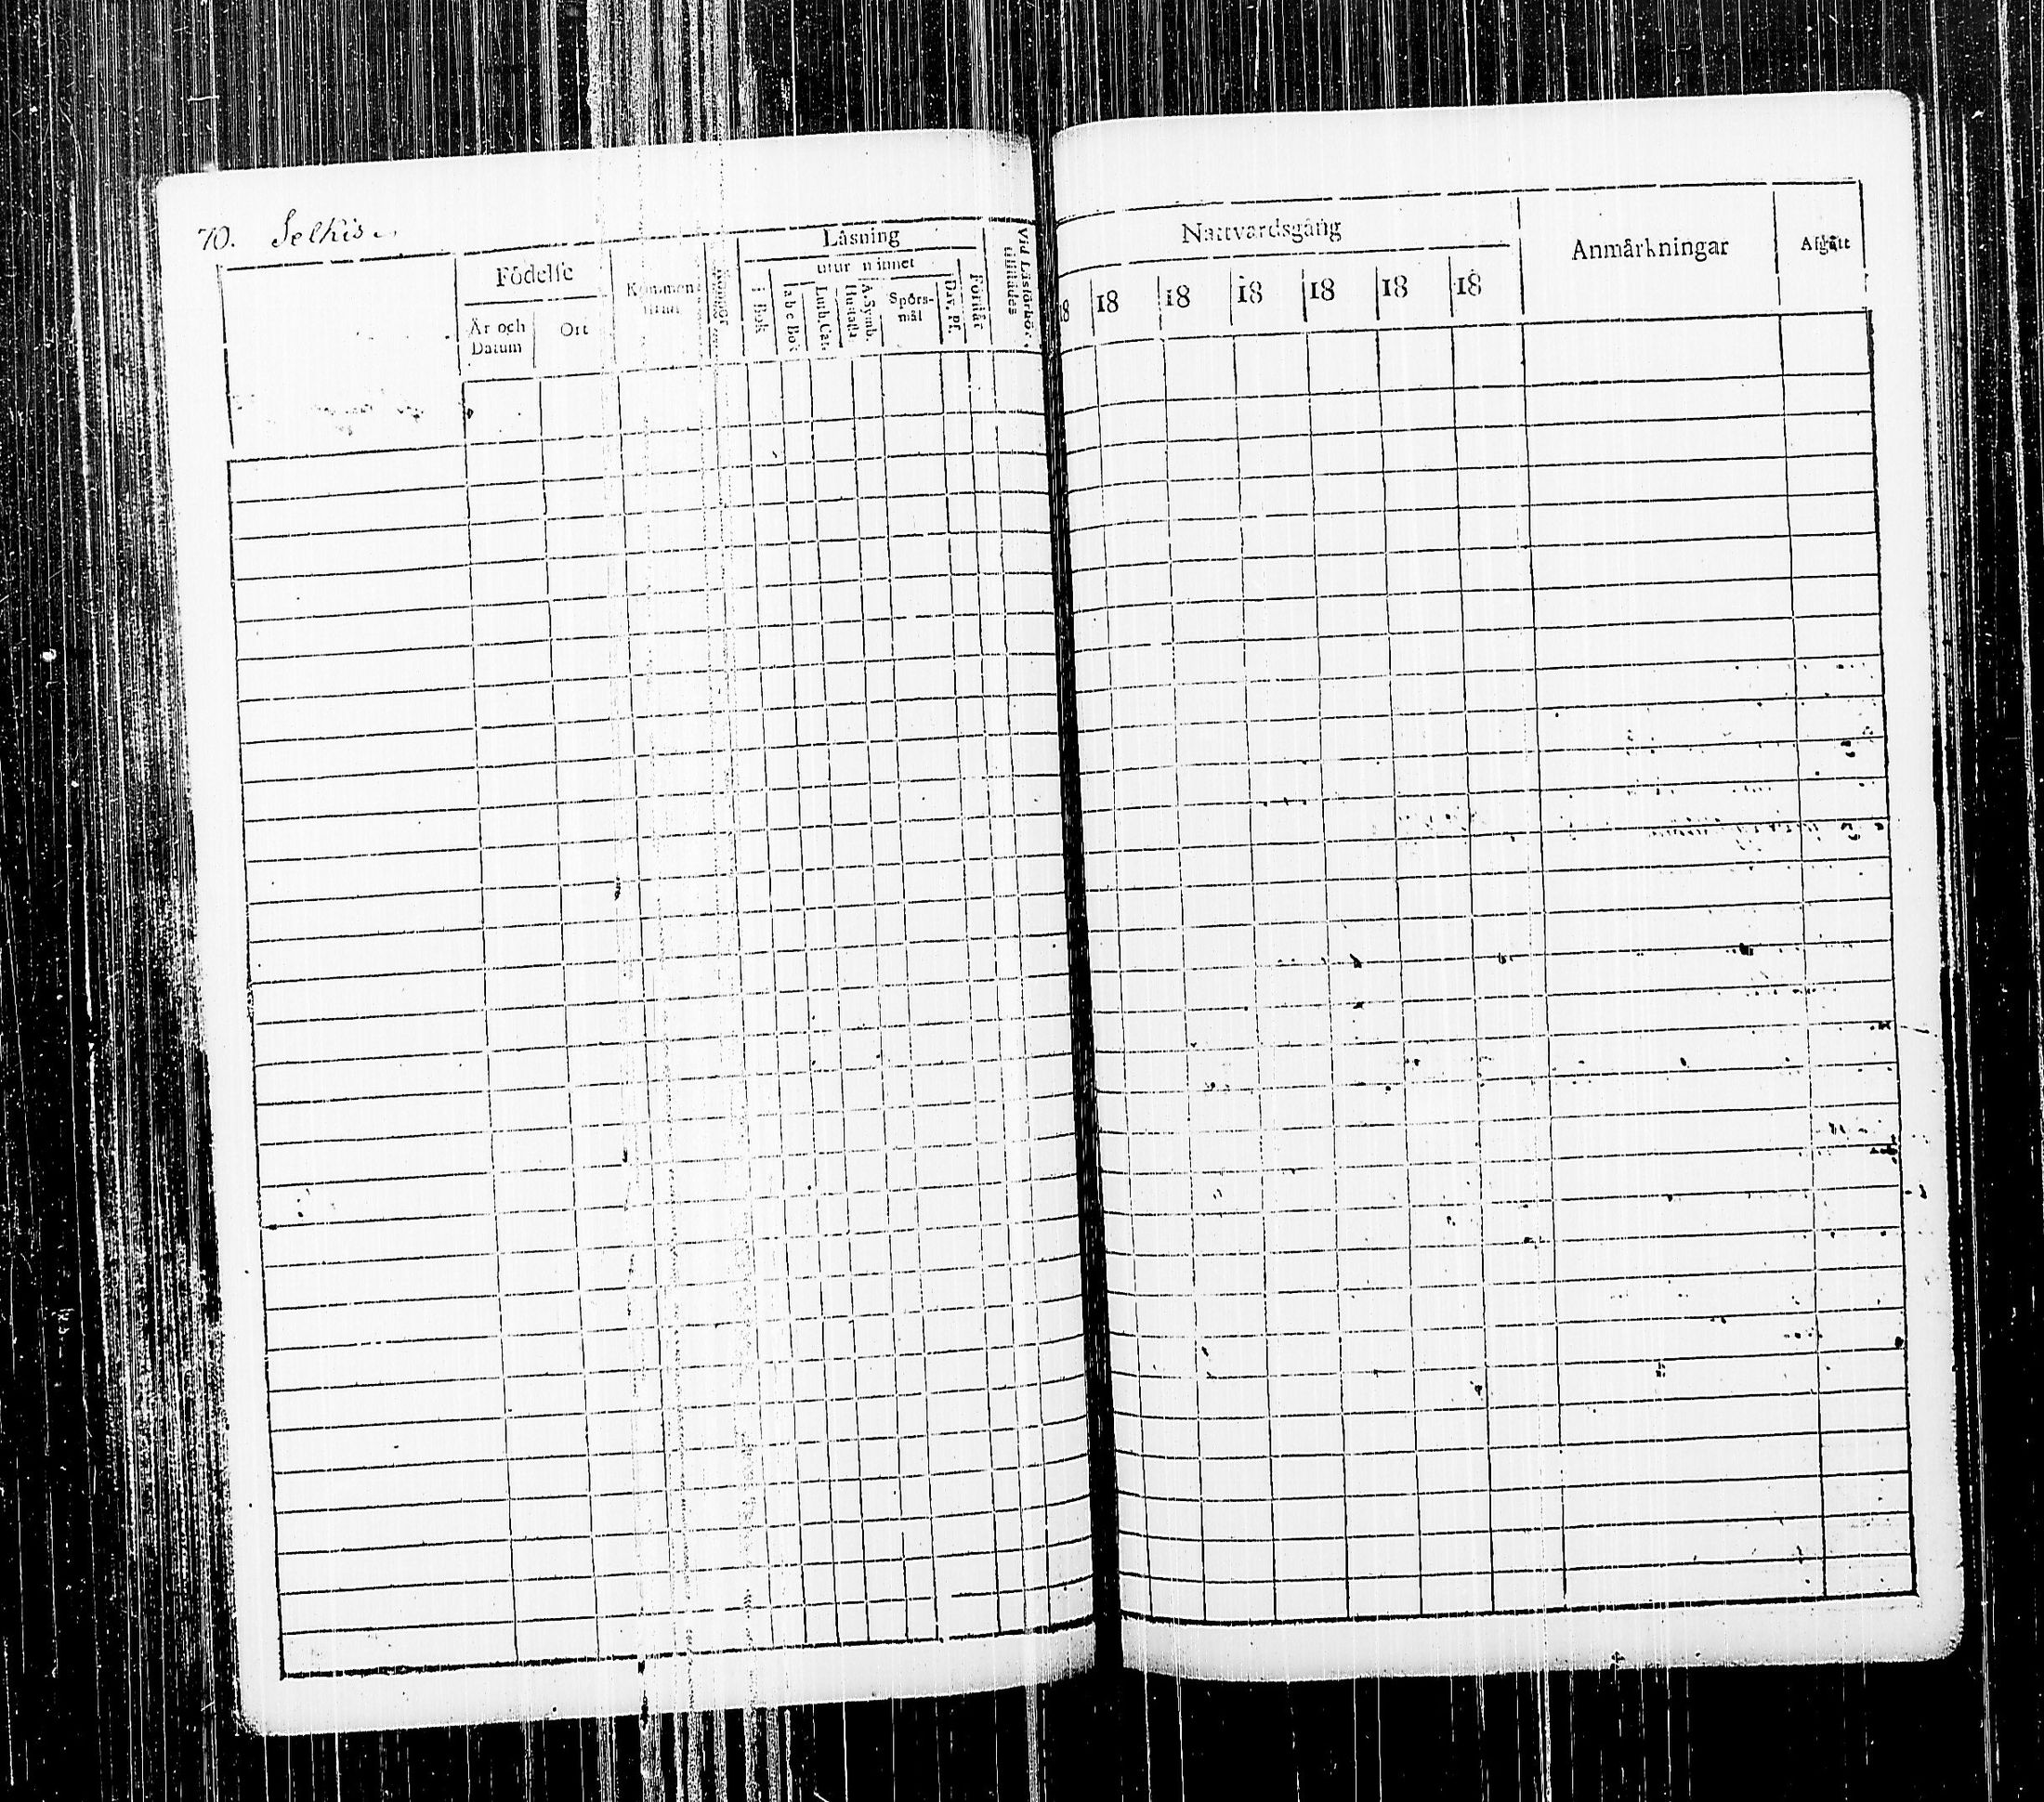 70. Selkis
Födelse
År och Datum
Ort
Kommen ifrån
Läsning
utur minnet
i Bok
Luth. Cat.
Hustafla
A. Symb.
Spörsmål
Dav. Ps.
Förstår
Vid Läsförhör
Nattvardsgång
18 18 18 18 18 18 18
Anmärkningar
Afgått